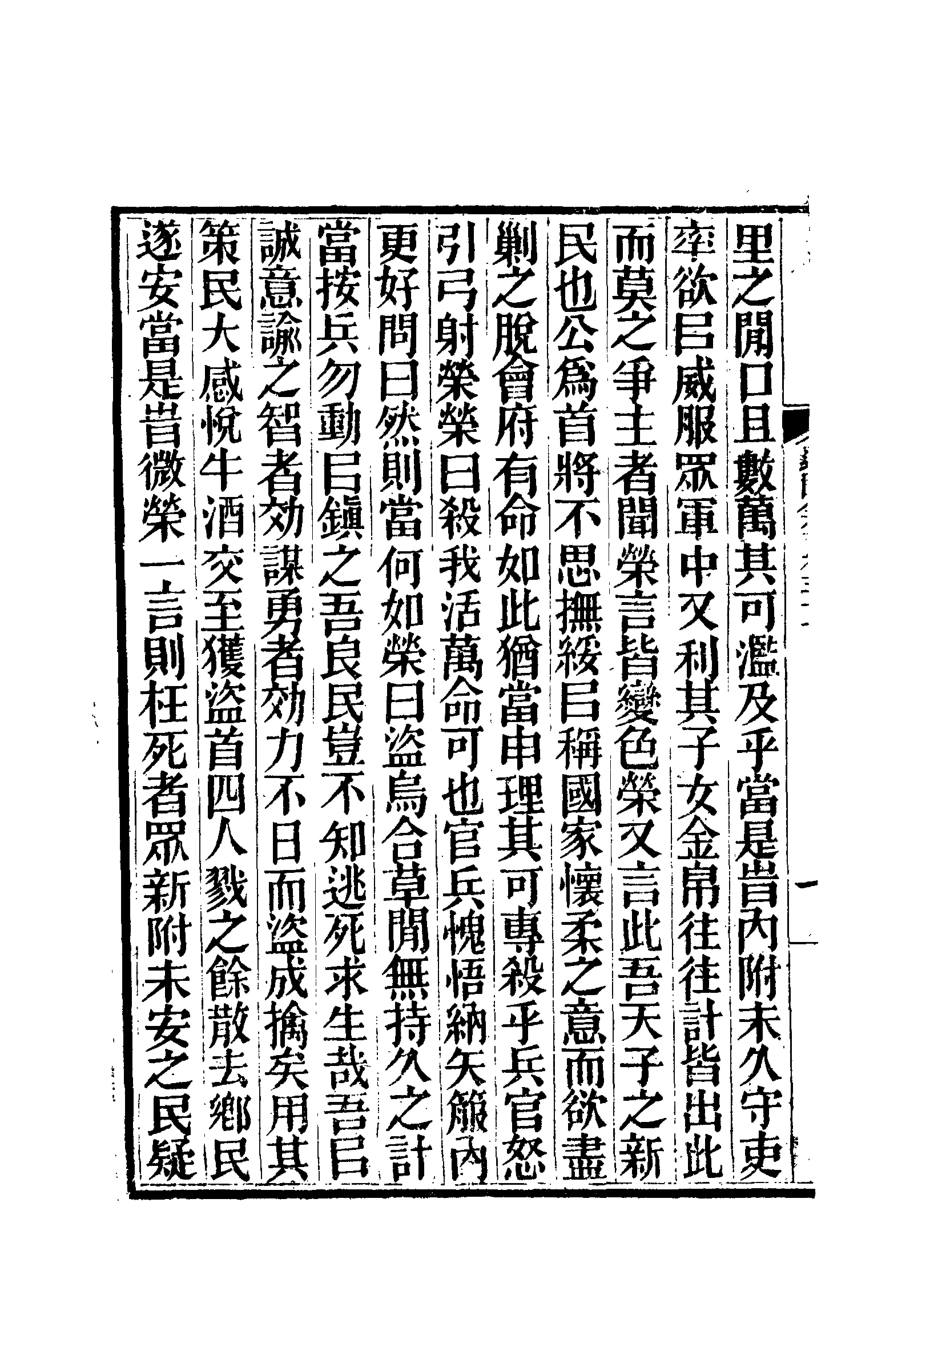 里之閒口且數萬其可濫及乎當是旹內附未久守吏
率欲㠯威服眾軍中又利其子女金帛往往計皆出此
而莫之爭主者聞榮言皆變色榮又言此吾天子之新
民也公爲首將不思撫綏㠯稱國家懷柔之意而欲盡
剿之脫會府有命如此猶當申理其可專殺乎兵官怒
引弓射榮榮曰殺我活萬命可也官兵愧悟納矢箙內
更好問曰然則當何如榮曰盜烏合草閒無持久之計
當按兵勿動㠯鎭之吾良民豈不知逃死求生哉吾㠯
誠意諭之智者効謀勇者効力不日而盜成擒矣用其
策民大感悅牛酒交至獲盜首四人戮之餘散去鄉民
遂安當是旹微榮一言則枉死者眾新附未安之民疑